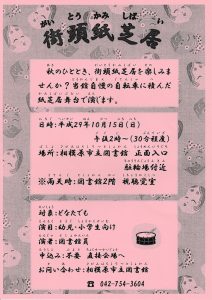 がいとうかみしばい
街頭紙芝居
秋のひととき、街頭紙芝居を楽しみま
せんか?当館自慢の自転車に積んだ
紙芝居舞台で演じます。
日時:平成29年10月15日(日)
午後2時~(30分程度)
場所:相模原市立図書館 正面入口
駐輪場付近
※雨天時:図書館2階 視聴覚室
対象:どなたでも
演目:幼児・小学生向け
演者:図書館員
申込み:不要 直接会場へ
お問い合わせ:相模原市立図書館
☎042-754-3604